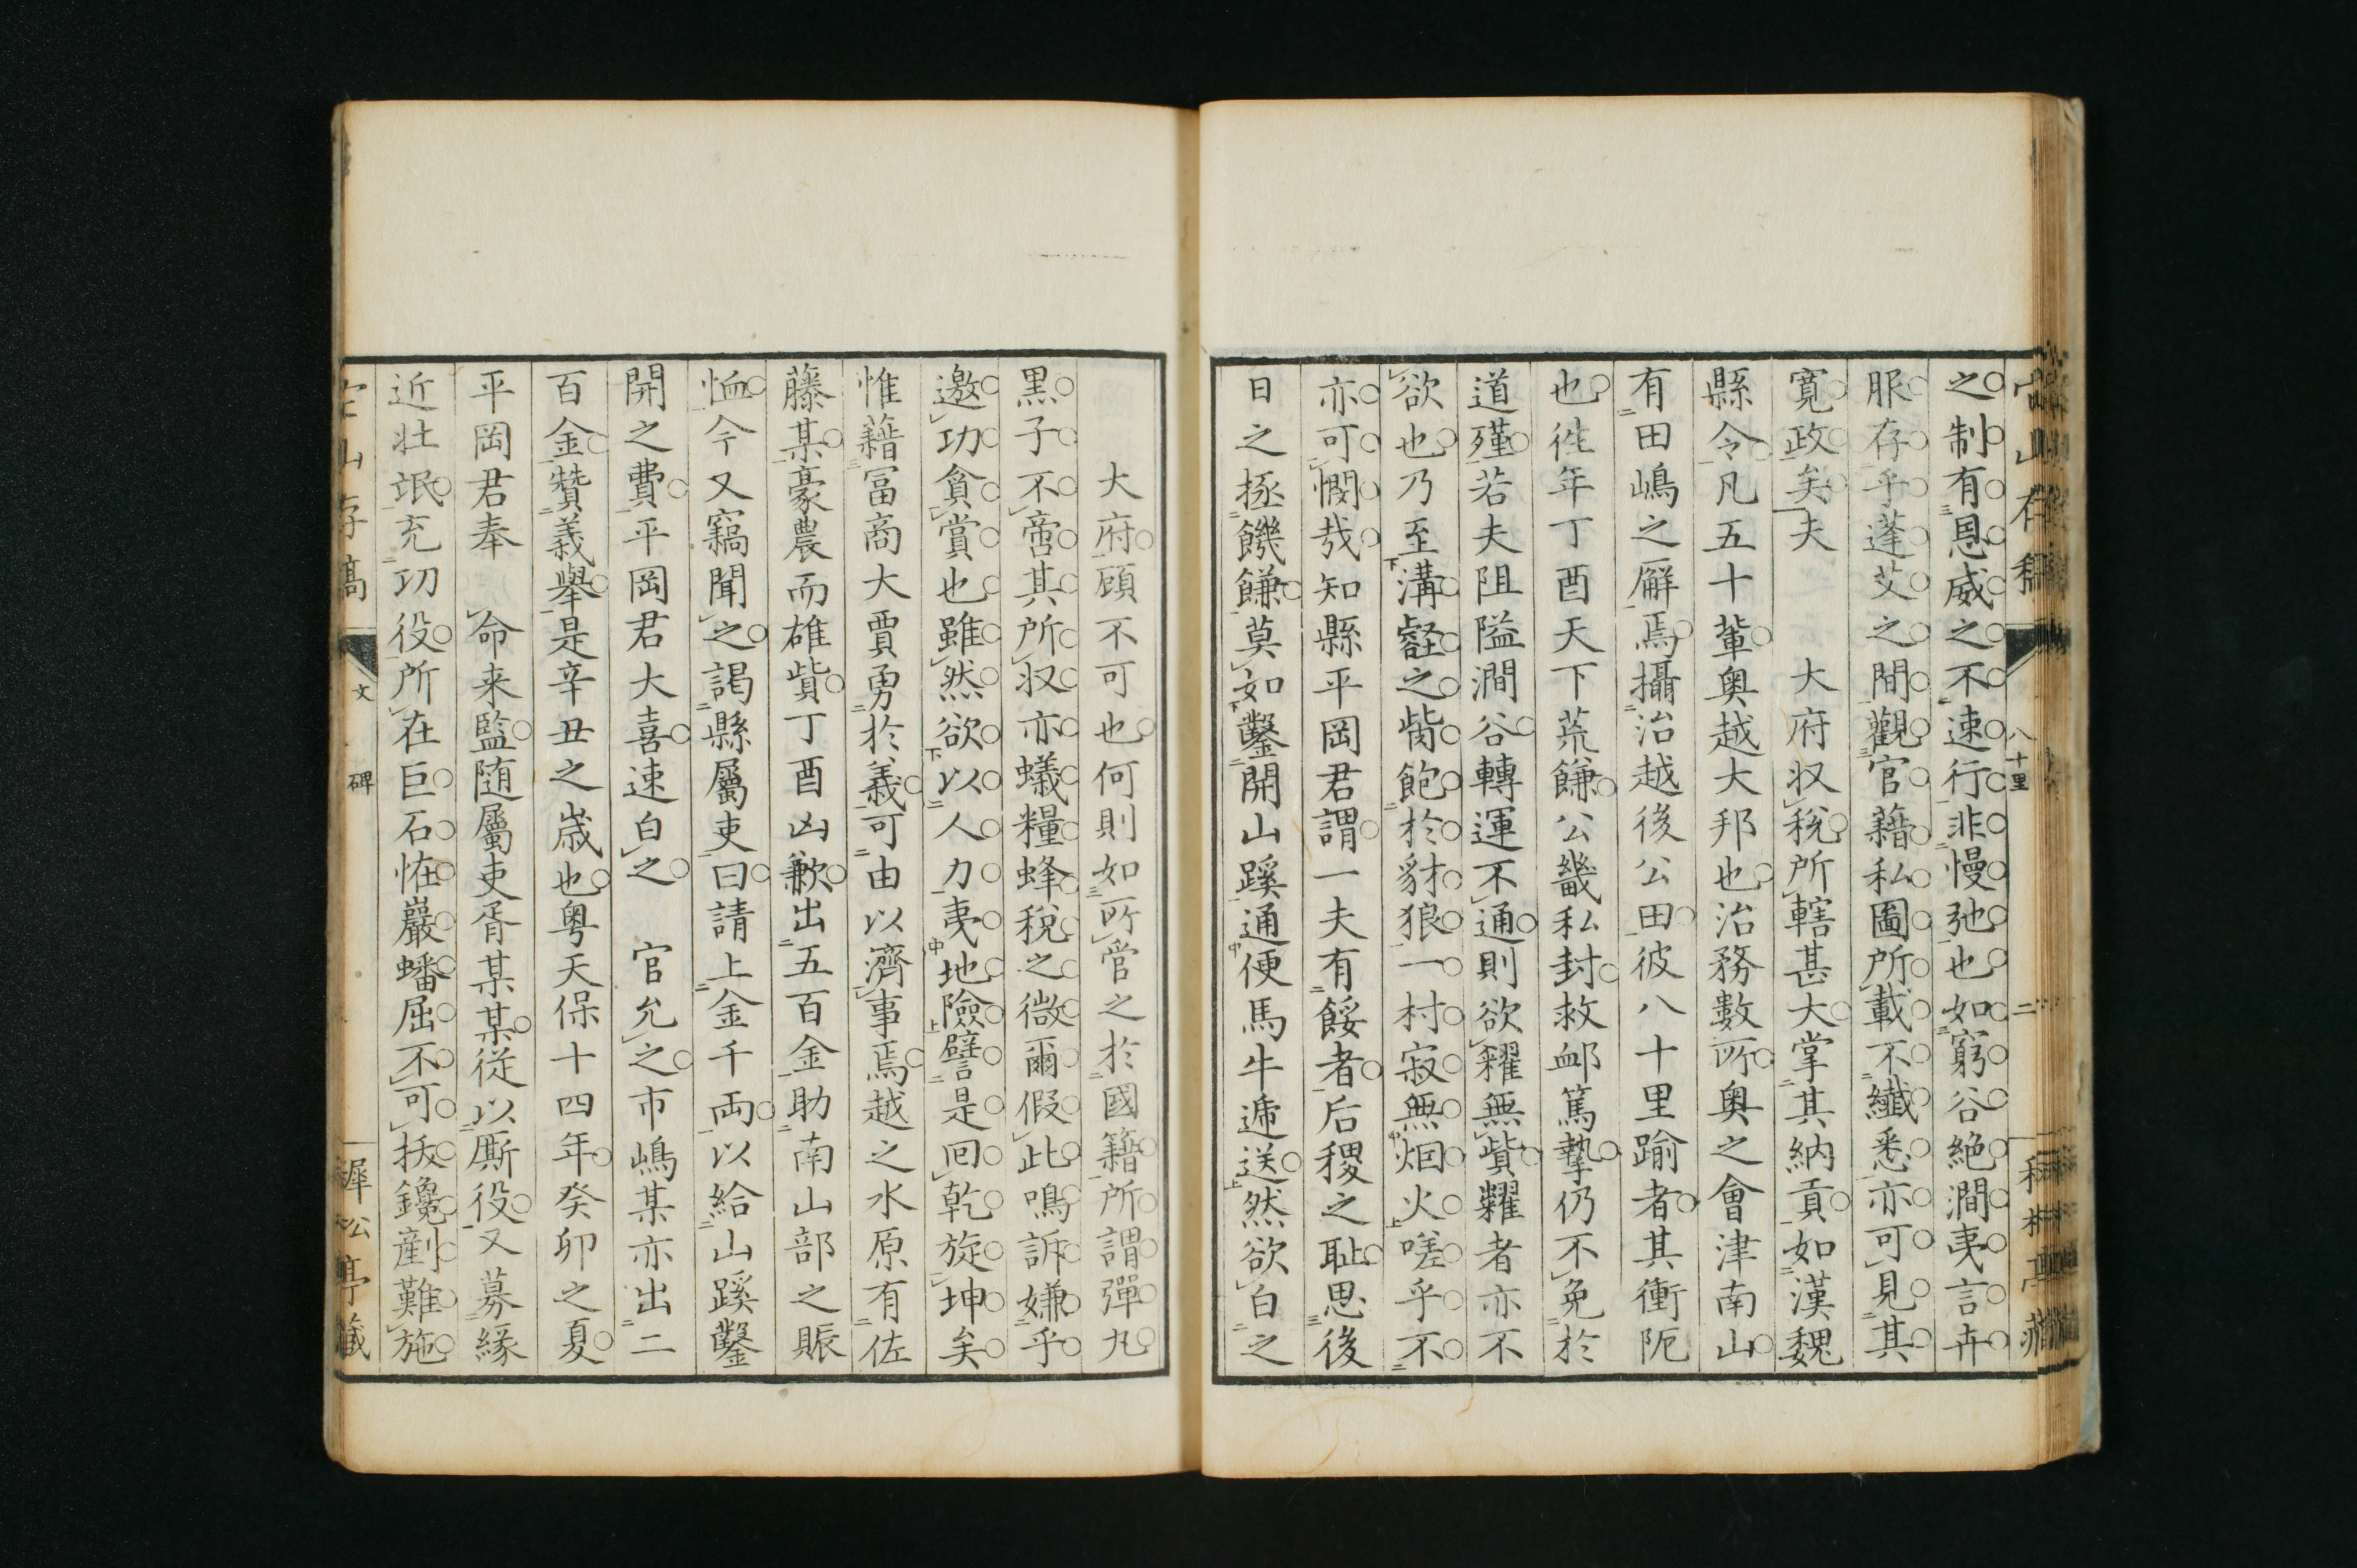 之制有恩威之不速行非慢弛也如窮谷絶澗夷言卉
服存乎蓬艾之間觀官籍私圖所載不纎悉亦可見其
寛政矣夫　大府収税所轄甚大掌其納貢如漢魏
縣令凡五十輩奥越大邦也治務數所奥之會津南山
有田嶋之廨焉攝治越後公田彼八十里踰者其衝阨
也徃年丁酉天下荒饑公畿私封救卹篤摯仍不免於
道殣若夫阻隘澗谷轉運不通則欲糴無貲糶者亦不
欲也乃至溝壑之胔飽於豺狼一村寂無烟火嗟乎不
亦可憫哉知縣平岡君謂一夫有餒者后稷之耻思後
日之拯饑饉莫如鑿開山蹊通便馬牛遞送然欲白之
大府顧不可也何則如所管之於國籍所謂彈丸
黒子不啻其所収亦蟻糧蜂税之微爾假此鳴訴嫌乎
邀功貪賞也雖然欲以人力夷地險譬是回乾旋坤矣
惟藉冨商大賈勇於義可由以濟事焉越之水原有佐
藤某豪農而雄貲丁酉凶歉出五百金助南山部之賑
恤今又竊聞之謁縣屬吏曰請上金千両以給山蹊鑿
開之費平岡君大喜速白之　官允之市嶋某亦出二
百金贊義舉是辛丑之歳也粤天保十四年癸卯之夏
平岡君奉　命来監随屬吏胥某某従以厮役又募縁
近壮氓充功役所在巨石恠巖蟠屈不可抜鑱剷難施
文　碑